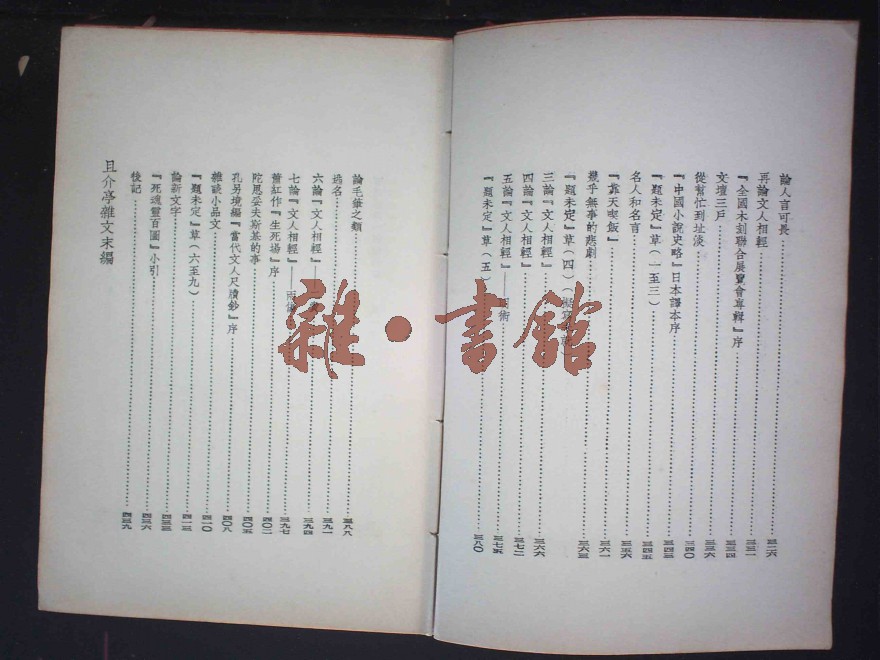 論人言可畏……三二六
再論文人相輕……三三一
『全國木刻聯合展覽會專輯』序……三三四
文壇三戶……三三六
從幫忙到扯淡……三四〇
『中國小說史略』日本譯本序……三四三
『題未定』草（一至三）……三四五
名人和名言……三五六
『靠天喫飯』……三六一
幾乎無事的悲劇……三六三
『題未定』草（四）
三論『文人相輕』……三六六
四論『文人相輕』……三七二
五論『文人相輕』——術……三七五
『題未定』草（五）……三八〇
論毛筆之類……三八八
逃名……三九一
六論『文人相輕』——二賣……三九四
七論『文人相輕』——兩傷……三九七
蕭紅作『生死場』序……四〇二
陀思妥夫斯基的事……四〇五
孔另境編『當代文人尺牘鈔』序……四〇八
雜談小品文……四一〇
『題未定』草（六至九）……四一三
論新文字……四三三
『死魂靈百圖』小引……四三六
後記……四三九
且介亭雜文末編
雜·書館